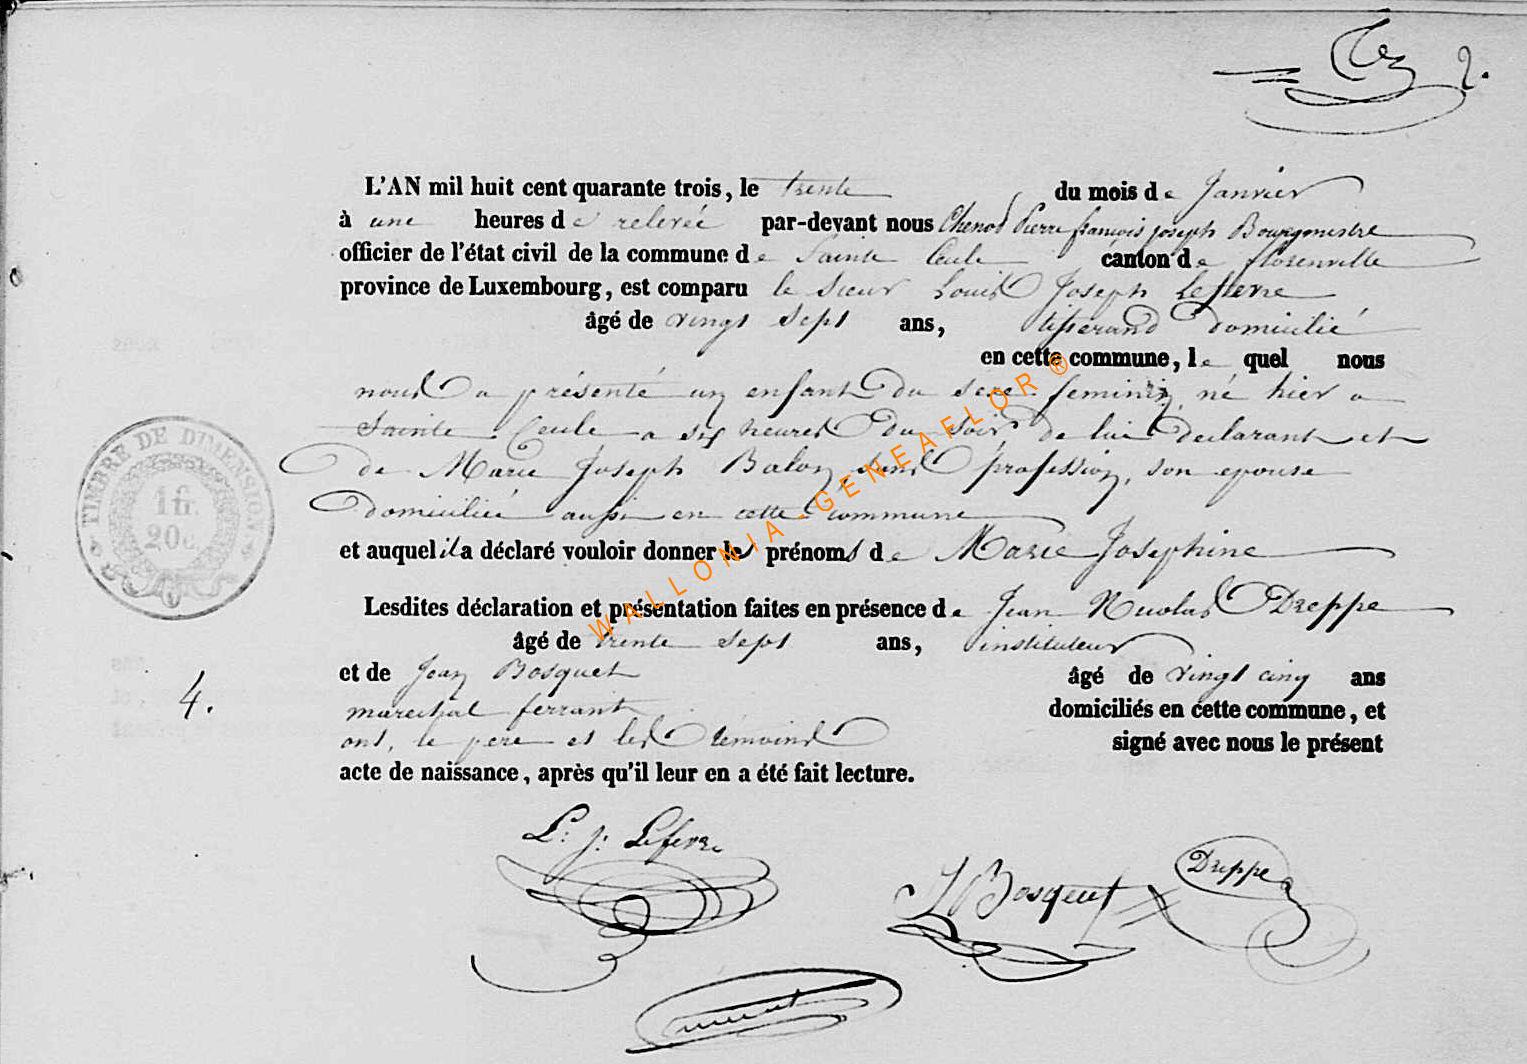 2.
L'AN mil huit cent quarante trois, le trente du mois de Janvier
à une heures de relevée par-devant nous Chenot Pierre françois joseph Bourgmestre
officier de l'état civil de la commune de Sainte Cecile canton de florenville
province de Luxembourg, est comparu le Sieur Louis Joseph Lefevre
âgé de vingt sept ans, tisserand domicilié
en cette commune, le quel nous
nous a présenté un enfant du sexe feminin, né hier a
Sainte Cecile a six heures du soir de lui declarant et
de Marie Joseph Balon, sans profession, son epouse
domiciliée aussi en cette commune
et auquel il a déclaré vouloir donner les prénoms de Marie Josephine
Lesdites déclaration et présentation faites en présence de Jean Nicolas Dreppe
âgé de trente sept ans, instituteur
et de Jean Bosquet âgé de vingt cinq ans
marechal ferrant domiciliés en cette commune, et
ont, le pere et les témoins signé avec nous le présent
acte de naissance, après qu'il leur en a été fait lecture.
4.
TIMBRE DE DIMENSION
1 fr.
20c.
L. j. Lefevre
J Bosquet
Dreppe
WALLONIA - GENEAFLOR ®